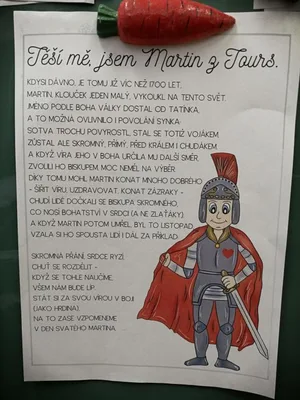 Těší mě, jsem Martin z Tours.
KDYSI DÁVNO, JE TOMU JIŽ VÍC NEŽ 1700 LET,
MARTIN, KLOUČEK JEDEN MALÝ, VYKOUKL NA TENTO SVĚT.
JMÉNO PODLE BOHA VÁLKY DOSTAL OD TATÍNKA,
A TO MOŽNÁ OVLIVNILO I POVOLÁNÍ SYNKA:
SOTVA TROCHU POVYROSTL, STAL SE TOTIŽ VOJÁKEM.
ZŮSTAL ALE SKROMNÝ, PŘÍMÝ, PŘED KRÁLEM I CHUĎÁKEM.
A KDYŽ VÍRA JEHO V BOHA URČILA MU DALŠÍ SMĚR,
ZVOLILI HO BISKUPEM, MOC NEMĚL NA VÝBĚR.
DÍKY TOMU MOHL MARTIN KONAT MNOHO DOBRÉHO
- ŠÍŘIT VÍRU, UZDRAVOVAT, KONAT ZÁZRAKY -
CHUDÍ LIDÉ DOČKALI SE BISKUPA SKROMNÉHO,
CO NOSÍ BOHATSTVÍ V SRDCI (A NE ZLAŤÁKY).
A KDYŽ MARTIN POTOM UMŘEL, BYL TO LISTOPAD,
VZALA SI HO SPOUSTA LIDÍ I DÁL ZA PŘÍKLAD:
SKROMNÁ PŘÁNÍ, SRDCE RYZÍ,
CHUŤ SE ROZDĚLIT -
KDYŽ SE TOHLE NAUČÍME,
VŠEM NÁM BUDE LÍP.
STÁT SI ZA SVOU VÍROU V BOJI
(JAKO HRDINA)
NA TO ZASE VZPOMENEME
V DEN SVATÉHO MARTINA.